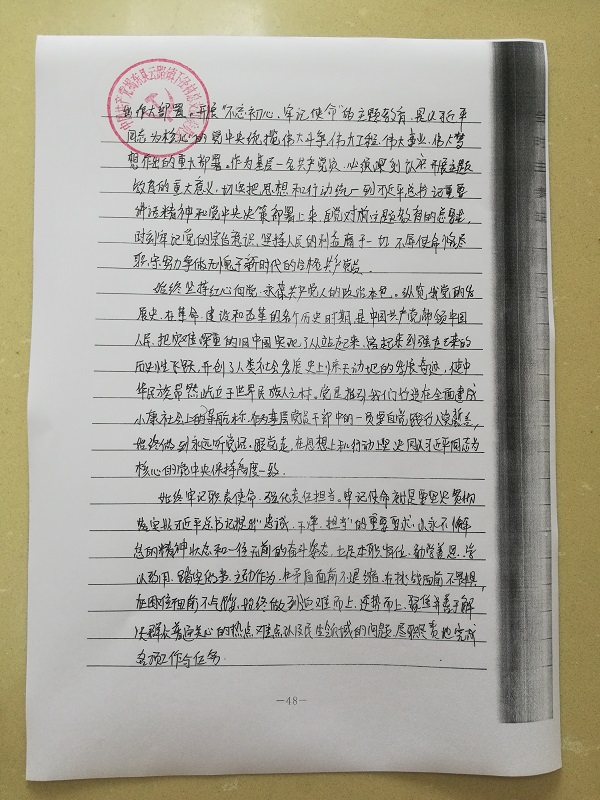 的伟大部署。开展“不忘初心、牢记使命”的主题教育，是以习近平
同志为核心的党中央统揽伟大斗争、伟大工程、伟大事业、伟大梦
想作出的重大部署。作为基层一名共产党员，必须深刻认识开展主题
教育的重大意义，切实把思想和行动统一到习近平总书记重要
讲话精神和党中央决策部署上来，自觉对前主题教育的总要求，
时刻牢记党的宗旨意识，坚持人民的利益高于一切，不辱使命，恪尽
职守努力争做无愧于新时代的合格共产党员。
始终坚持红心向党，永葆共产党人的政治本色。纵览我党的发
展史，在革命、建设和改革的各个历史时期，是中国共产党带领中国
人民，把灾难深重的旧中国实现了从站起来、富起来到强起来的
历史性飞跃，开创了人类社会发展史上惊天动地的发展奇迹，使中
华民族昂然屹立于世界民族之林。党是指引我们行进在全面建成
小康社会上的导航标，作为基层党员干部中的一员要自觉践行入党誓言，
始终做到永远听党话、跟党走，在思想上和行动上坚决同以习近平同志为
核心的党中央保持高度一致。
始终牢记职责使命，强化责任担当。牢记使命就是要坚决贯彻
落实以习近平总书记提出“忠诚、干净、担当”的重要要求，以永不懈
怠的精神状态和一往无前的奋斗姿态，立足本职岗位，勤学善思、学
以致用、踏实做事、主动作为，在矛盾面前不退缩，在挑战面前不畏惧，
在困难面前不气馁，始终做到迎难而上、逆势而上，聚焦并善于解
决群众普遍关心的热点、难点以及民生领域的问题，尽职尽责地完成
各项工作与任务。
—48—